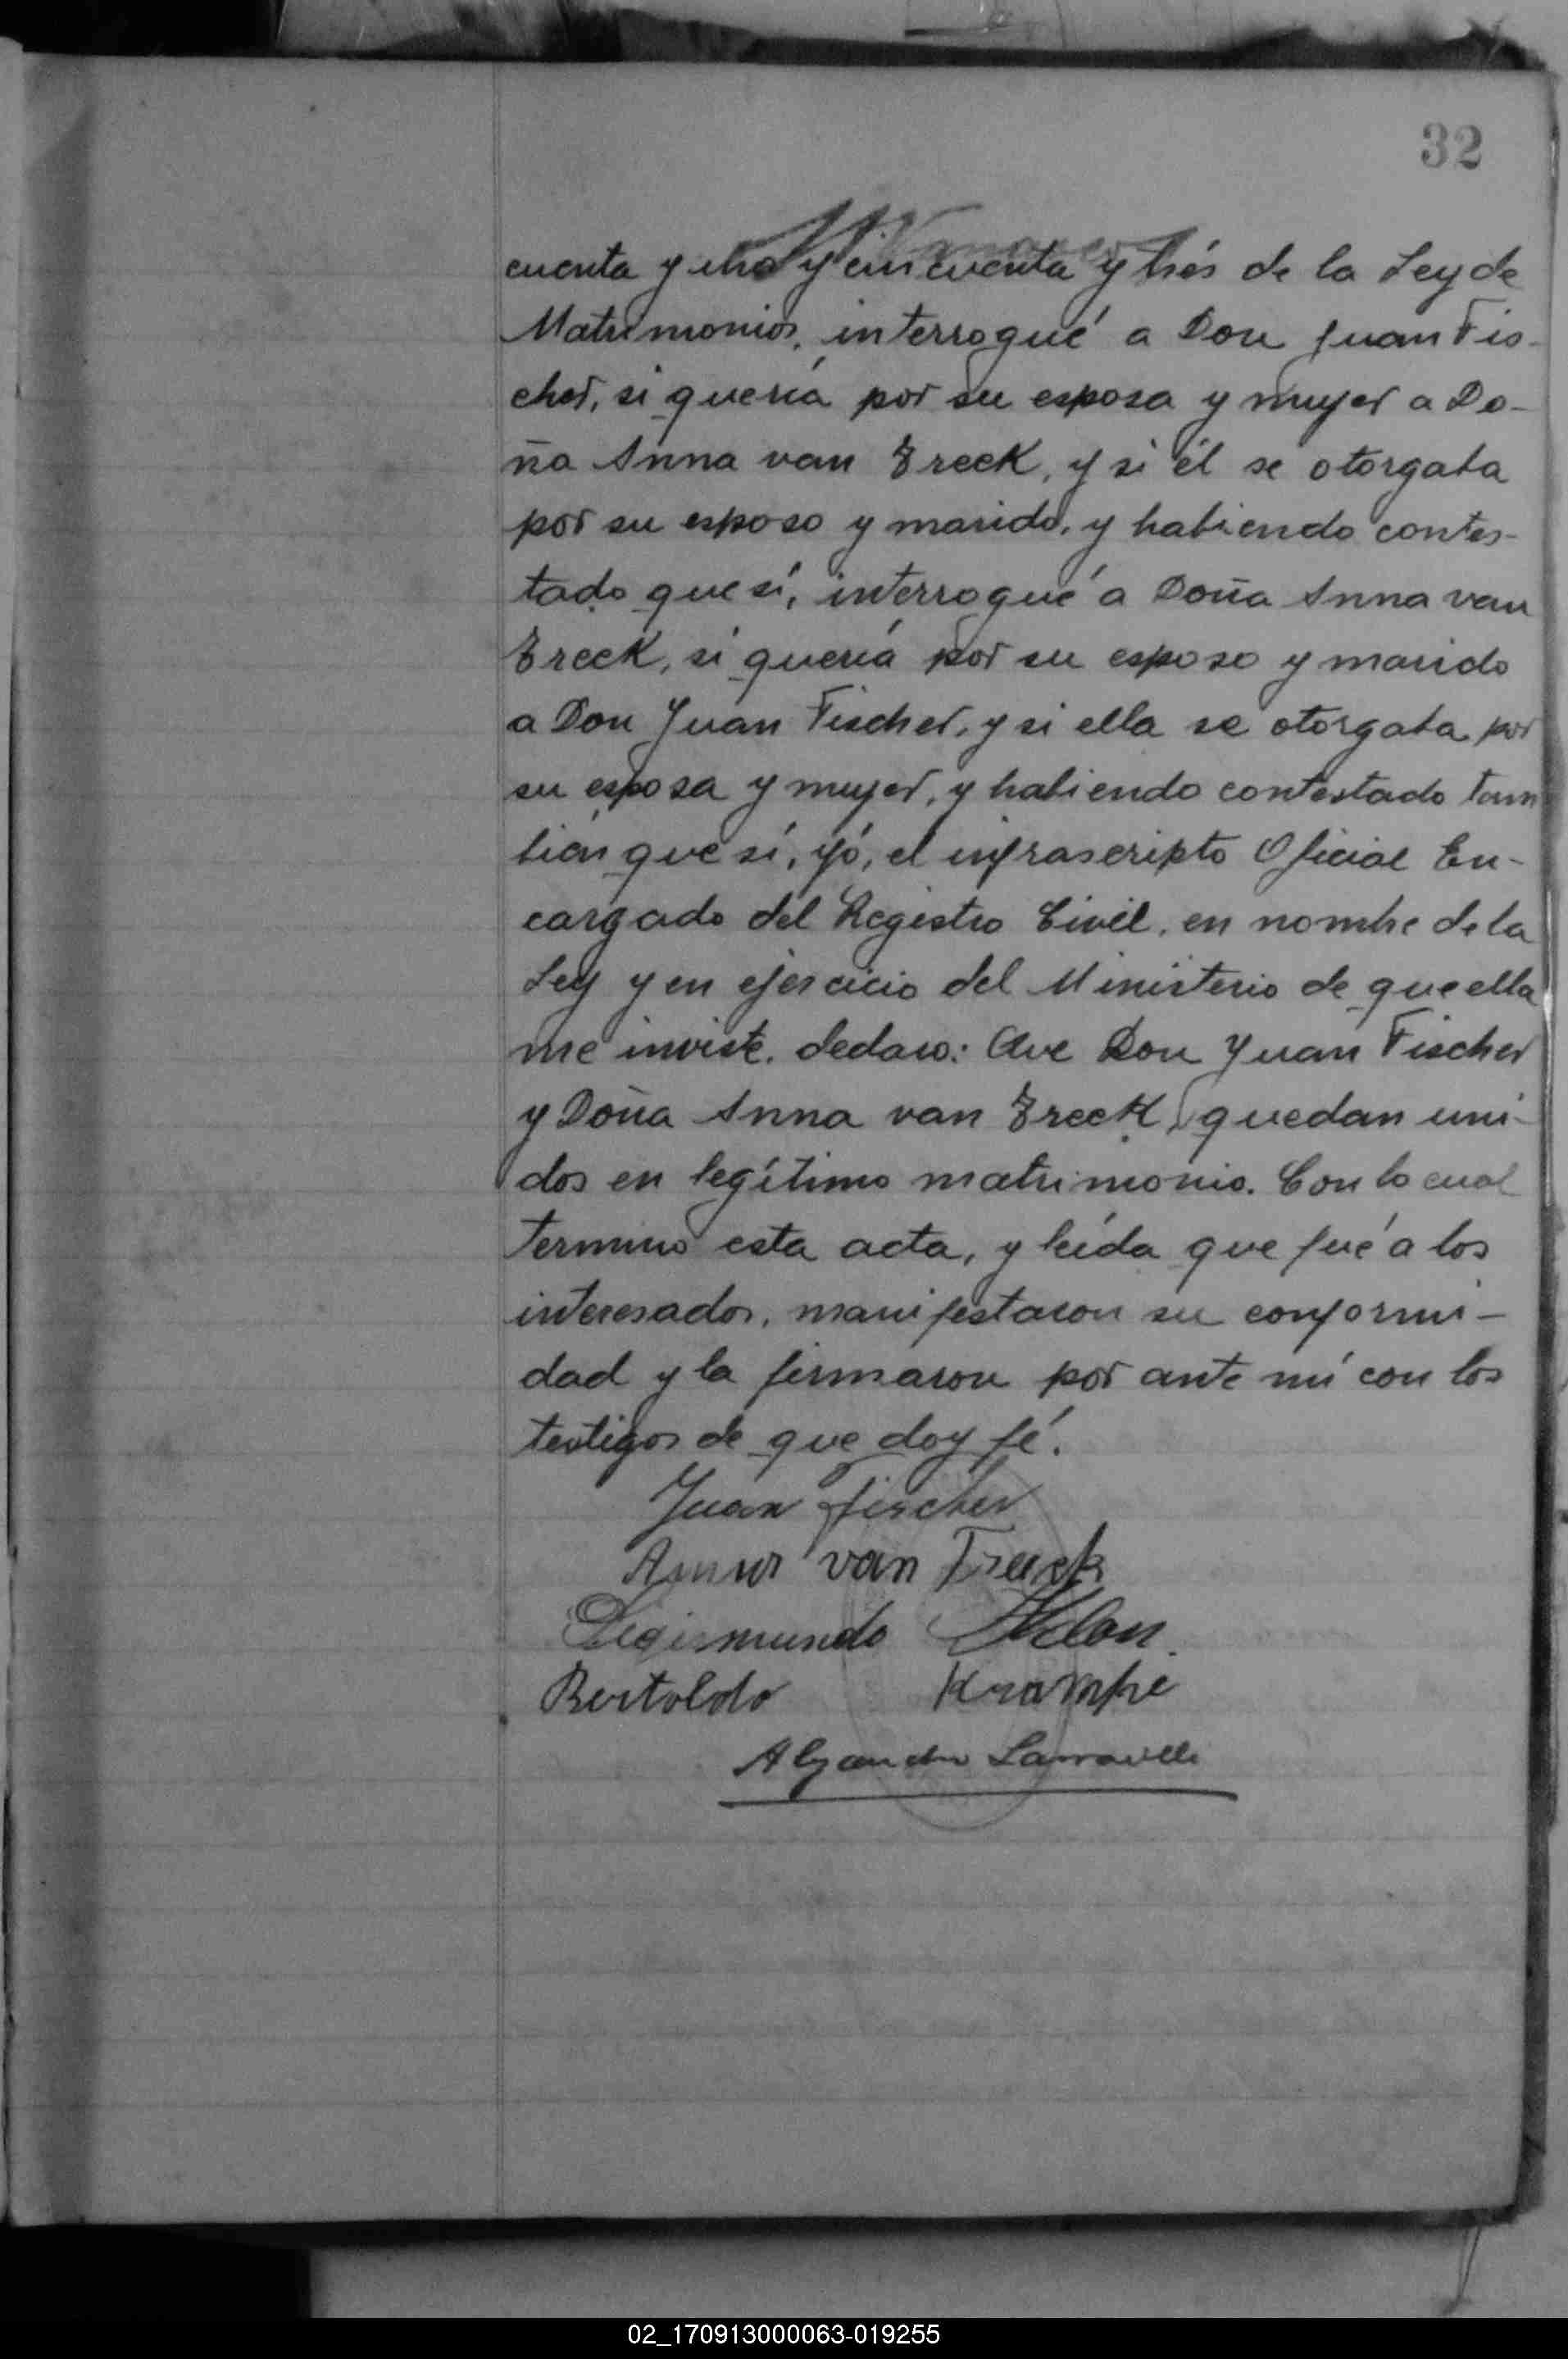 32
cuenta y uno y cincuenta y trés de la Ley de
Matrimonios, interrogué a Don Juan Fis-
cher, si quería por su esposa y mujer a Do-
ña Anna van Treeck, y si él se otorgaba
por su esposo y marido, y habiendo contes-
tado que sí, interrogué a Doña Anna van
Treeck, si quería por su esposo y marido
a Don Juan Fischer, y si ella se otorgaba por
su esposa y mujer, y habiendo contestado tam
bién que sí, yó, el infrascripto Oficial En-
cargado del Registro Civil, en nombre de la
Ley y en ejercicio del Ministerio de que ella
me inviste, declaro: Que Don Juan Fischer
y Doña Anna van Treeck, quedan uni-
dos en legítimo matrimonio. Con lo cual
termino esta acta, y leída que fué a los
interesados, manifestaron su conformi-
dad y la firmaron por ante mí con los
testigos de que doy fé.
Juan Fischer
Anna van Treeck
Segismundo
Bertoldo Krampe
Alejandro
02_170913000063-019255